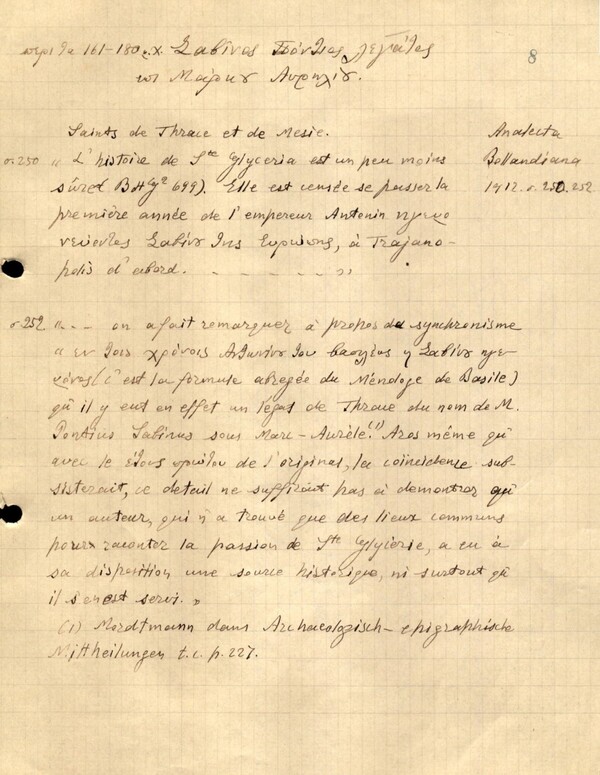 περι τα 161-180 μ.χ Σαβίνος Πόντιος λεγάτος
8
επι Μάρκου Αυρηλίου.
Saints de Thrace et de Mesie.
Analecta
σ.250 „ L'histoire de Ste Glyceria est un peu moins
Bollandiana
sûre( BHG² 699). Elle est censée se passer la
1912. σ. 250.252
première année de l'empereur Antonin ηγεμο
νεύοντος Σαβίνου της Ευρώπης, à Trajano-
polis d'abord. - - - - - - - "
σ 252 „ - - on a fait remarquer à propos du synchronisme
" εν τοις χρόνοις Αντωνίνου του βασιλέως ϗ Σαβίνου ηγε-
μόνος (c'est la formule abregée du Ménologe de Basile)
qu'il y eut en effet un légat de Thrace du nom de M.
Pontius Sabinus sous Marc-Aurèle.(1) Alors même qu'
avec le έτους πρώτου de l'original, la coïncidence sub-
sisterait, ce detail ne suffirait pas à demontrer qu'
un auteur, qui n'a trouvé que des lieux communs
pour raconter la passion de Ste Glycérie, a eu à
sa disposition une source historique, ni surtout qu'
il s'en est servi. "
(1) Mordtmann dans Archaeologisch-epigraphische
Mittheilungen t.c. p. 227.